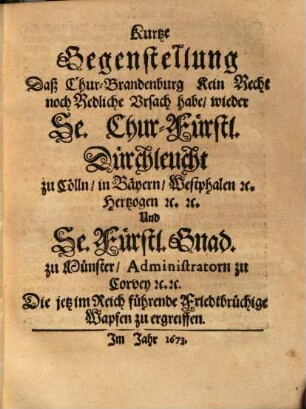 Kurtze
Gegenstellung
Daß Chur-Brandenburg Kein Recht
noch Redliche Ursach habe/ wieder
Se. Chur-Fürstl.
Dürchleucht
zu Cölln/ in Bäyern/ Westphalen ꝛc.
Hertzogen ꝛc. ꝛc.
Und
Se. Fürstl. Gnad.
zu Münster/ Administratorn zu
Corvey ꝛc. ꝛc.
Die jetz im Reich führende Friedtbrüchige
Wapfen zu ergreiffen.
Im Jahr 1673.